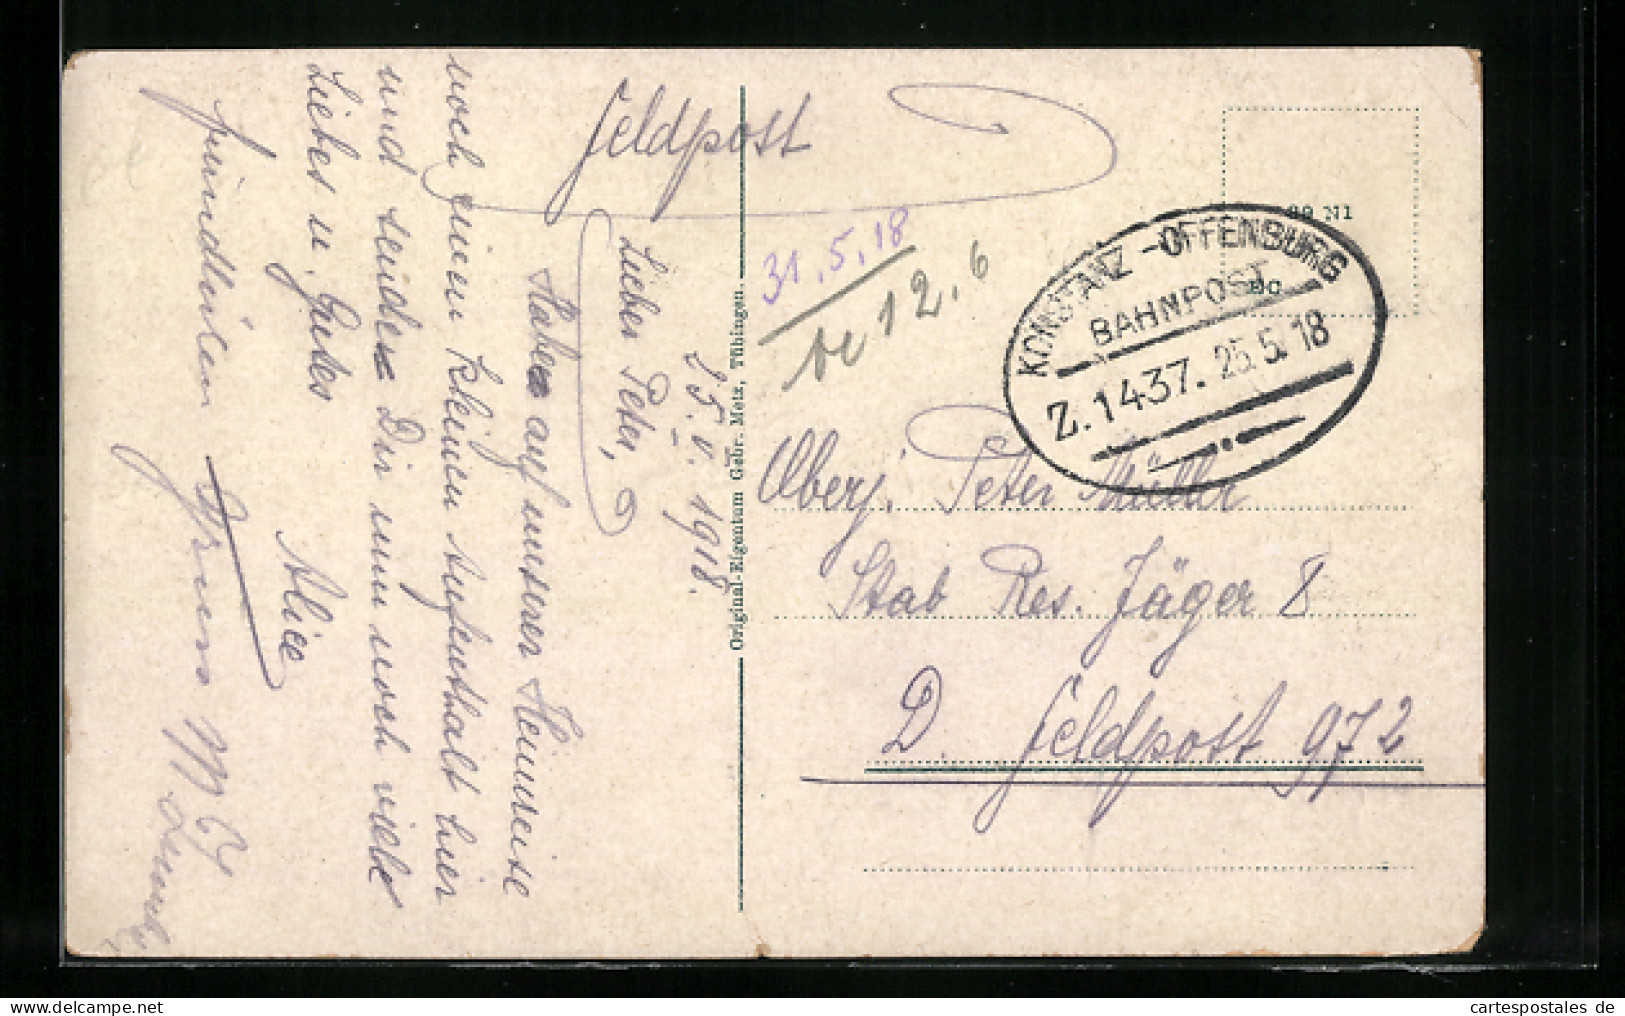 Feldpost
25.V.1918.
Lieber Peter,
Haben auf unserer Heimreise
noch einen kleinen Aufenthalt hier
und senden Dir nun noch viele
Liebes u. Gutes
Alice
freundlichen Gruss
Original-Eigentum Gebr. Metz, Tübingen.
31.5.18
12.6
KONSTANZ - OFFENBURG
BAHNPOST
Z. 1437. 25.5.18
Oberj. Peter Müller
Stab Res. Jäger 8
D. Feldpost 972
cartespostales de